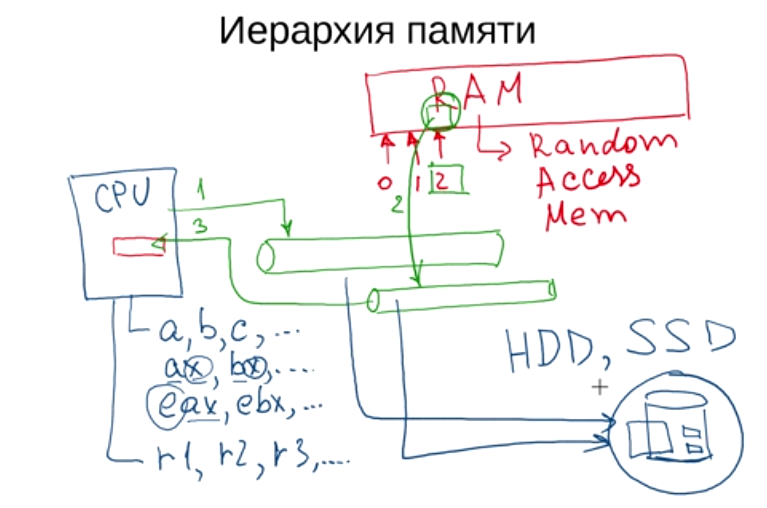 Иерархия памяти
RAM
Random
Access
Mem
0 1 2
2
CPU
1
3
a, b, c, ...
ax, bx, ....
eax, ebx, ...
r1, r2, r3, ....
HDD, SSD